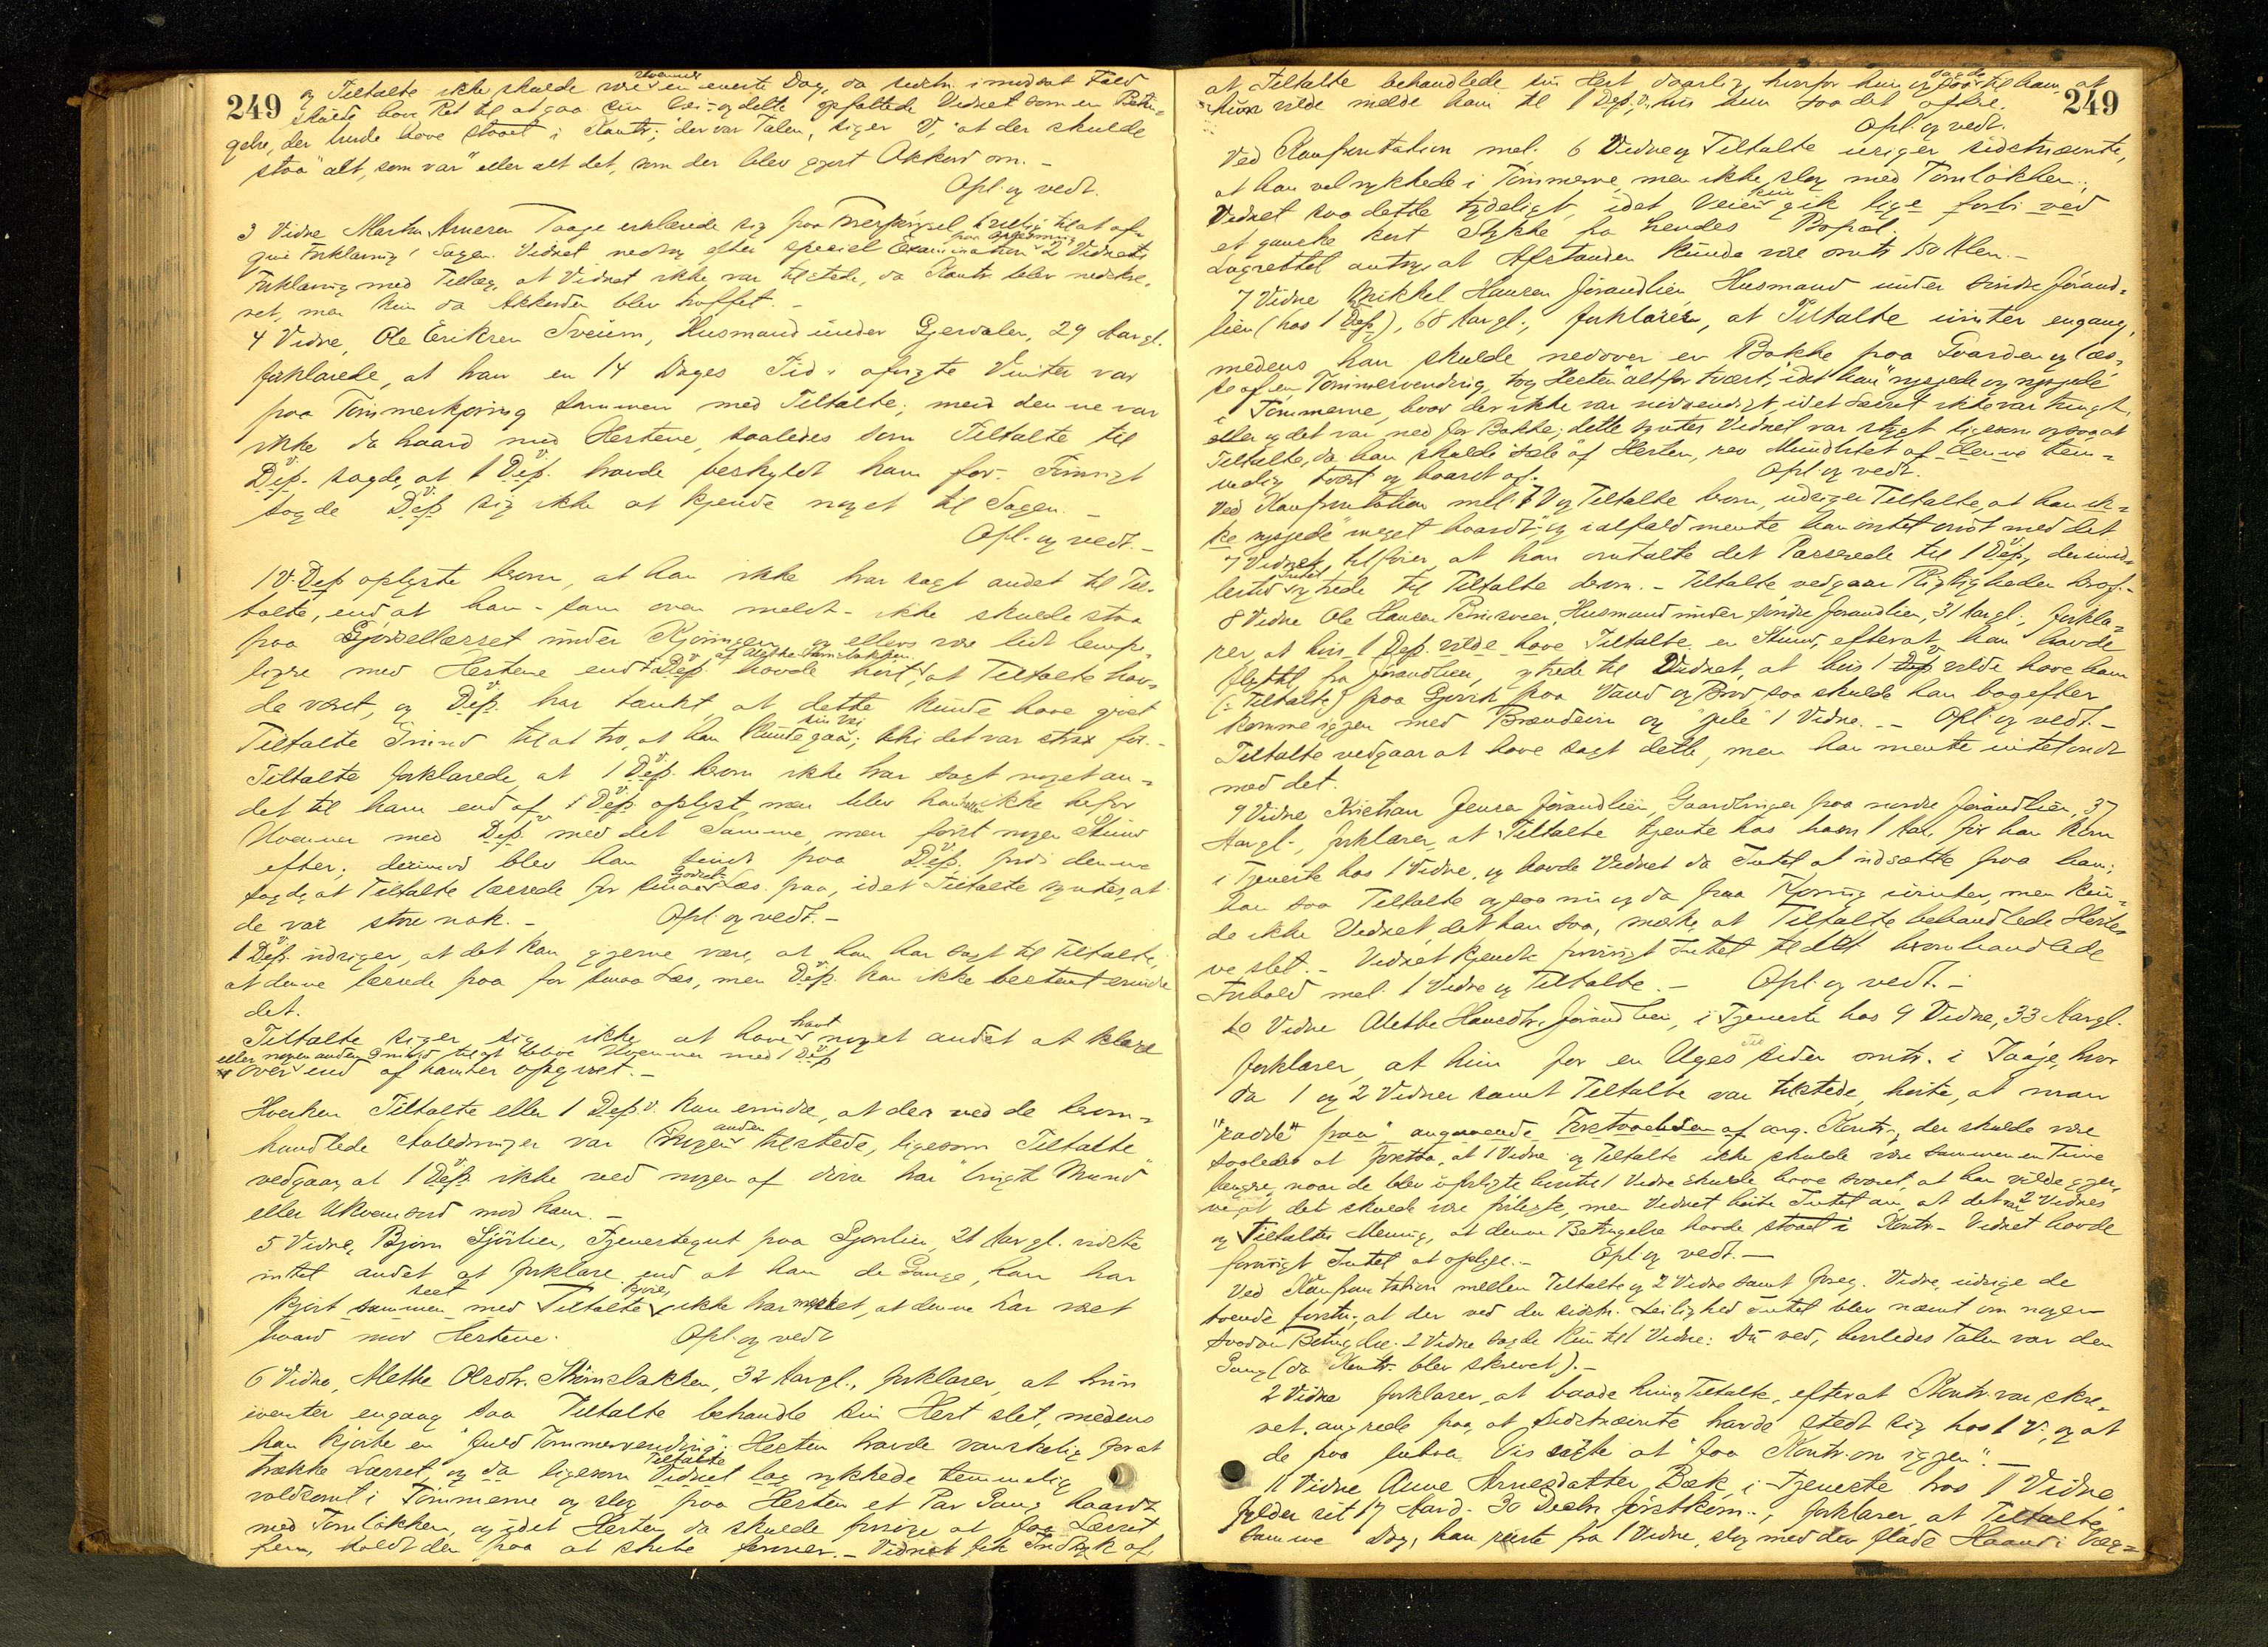 249
og Tiltalte ikke skulde være uvenner eneste Dag, da sidstn. i modsat Fald
skulde have Ret til at gaa sin Vei - og dette opfattede Vidnet som en Betin-
gelse, der burde have staaet i Kontr.; der var Talen, siger V, at der skulde
staa "alt, som var" eller alt det, som der blev gjort Akkord om. -
Opl. og vedt.
3 Vidne Marthe Arnesen Taaje erklærede sig paa Forespørgsel villig til at af-
give Forklaring i Sagen. Vidnet vedtog efter speciel Examination paa Oplæsning 2 Vidnets
Forklaring med Tillæg, at Vidnet ikke var tilstede, da Kontr. blev nedskre-
vet, men kun da Akkorden blev truffet. -
4 Vidne, Ole Eriksen Sveum, Husmand under Gjerdalen, 29 Aar gl.
forklarede, at han en 14 Dages Tid i afvigte Vinter var
paa Tømmerkjøring sammen med Tiltalte; men denne var
ikke da haard mod Hestene, saaledes som Tiltalte til
Dep. sagde, at 1 Dep. havde beskyldt ham for. Forøvrigt
sagde Dep. sig ikke at kjende noget til Sagen. -
Opl. og vedt. -
1 V. Dep. oplyste herom, at han ikke har sagt andet til Til-
talte, end at han - som oven meldt - ikke skulde staa
paa Gjødsellæsset under Kjøringen og ellers være lidt lempe-
ligere mod Hestene end Dep. havde hørt af Methe Tømlakken, at Tiltalte hav-
de været, og Dep. har tænkt, at dette kunde have givet
Tiltalte Grund til at tro, at han kunde gaa sin Vei; thi det var strax før. -
Tiltalte forklarede at 1 Dep. herom ikke har sagt noget an-
det til ham end af 1 Dep. oplyst, men blev han ikke derfor
Uvenner med Dep. med det Samme, men først nogen Stund
efter; derimod blev han sindt paa Dep. fordi denne
sagde, at Tiltalte læssede for smaa Læs paa, idet Tiltalte syntes, at
de var store nok. - Opl. og vedt. -
1 Dep. udsiger, at det kan gjerne være, at han har sagt til Tiltalte,
at denne læssede paa for smaa Læs, men Dep. kan ikke bestemt erindre
det.
Tiltalte siger sig ikke at have havt noget andet at klage
eller nogen anden Grund til at blive Uvenner med 1 Dep.
over end af ham her opgivet. -
Hverken Tiltalte eller 1 Dep. V. kan erindre, at der ved de herom-
handlede Anledninger var nogen anden tilstede, ligesom Tiltalte
vedgaar, at 1 Dep. ikke ved nogen af disse har "brugt Mund"
eller Ukvemsord mod ham. -
5 Vidne, Bjørn Sjørlien, Tjenestegut paa Sjørlien, 21 Aar gl. vidste
intet andet at forklare, end at han de Gange, han har
kjørt sammen med seet Tiltalte kjøre, ikke har mærket, at denne har været
haard mod Hestene. Opl. og vedt.
6 Vidne, Methe Olsdtr. Tømlakken, 32 Aar gl., forklarer, at hun
ivinter engang saa Tiltalte behandle sin Hest slet, medens
han kjørte en "fuld Tømmervending". Hesten havde vanskelig for at
trække Læsset, og da ligesom Vidnet Tiltalte tog rykkede temmelig
voldsomt i Tømmerne og slog paa Hesten et Par Gang haardt
med Tømløkken, og idet Hesten da skulde forsøge at faa Læsset
frem, holdt den paa at stube forover. - Vidnet fik Indtryk af,
249
at Tiltalte behandlede sin Hest daarlig, hvorfor hun og sagde til ham, at
hun vilde melde ham til 1 Dep., hvis hun saa det oftere.
Opl. og vedt.
Ved Konfrontation mel. 6 Vidne og Tiltalte udsiger sidstnævnte,
at han vel rykkede i Tømmerne, men ikke slog med Tømløkken;
Vidnet saa dette tydeligt, idet Veien kun gik lige forbi ved
et ganske kort Stykke fra hendes Bopæl.
Lagrettet antog, at Afstanden kunde være omtr. 150 Alen. -
7 Vidne Mikkel Hansen Jørandlien, Husmand under søndre Jørand-
lien (hos 1 Dep.), 68 Aar gl., forklarer, at Tiltalte ivinter engang,
medens han skulde nedover en Bakke paa Gaarden og læs-
se af en Tømmervending, tog Hesten "altfor tvært", idet han "nyggede og nyggede"
i Tømmerne, hvor der ikke var nødvendigt, idet Læsset ikke var tungt,
eller og det var ned for Bakke; dette syntes Vidnet var stygt ligesom ogsaa, at
Tiltalte, da han skulde "sæle" af Hesten, rev Mundbitet af denne tem-
melig tvært og haardt af. Opl. og vedt.
Ved Konfrontation mel. 7 V og Tiltalte herom, udsiger Tiltalte, at han ik-
ke nyggede "meget haardt", og ialfald mente han intet ondt med det.
7 Vidnet tilføier, at han omtalte det Passerede til 1 Dep., der imid-
lertid Intet ytrede til Tiltalte derom. - Tiltalte vedgaar Rigtigheden heraf. -
8 Vidne Ole Hansen Penisveen, Husmand under søndre Jørandlien, 31 Aar gl., forkla-
rer, at hvis 1 Dep. vilde have Tiltalte en Stund, efterat han havde
flyttet fra Jørandlien, ytrede til Vidnet, at hvis 1 Dep. vilde have ham
(: Tiltalte) paa Gjøvik paa Vand og Brød, saa skulde han bagefter
komme igjen med Brændevin og "jule" 1 Vidne. - Opl. og vedt. -
Tiltalte vedgaar at have sagt dette, men han mente intet ondt
med det.
9 Vidne Kristian Jensen Jørandlien, Gaardbruger paa nordre Jørandlien, 37
Aar gl., forklarer, at Tiltalte tjente hos ham 1 Aar, før han kom
i Tjeneste hos 1 Vidne, og havde Vidnet da Intet at udsætte paa ham;
han saa Tiltalte ogsaa nu og da paa Kjøring ivinter, men kun-
de ikke Vidnet, det han saa, mærke, at Tiltalte behandlede Heste-
ne slet. - Vidnet kjendte forøvrigt Intet til det heromhandlede
Forhold mel. 1 Vidne og Tiltalte. - Opl. og vedt. -
10 Vidne Alethe Hansdtr. Jørandlien, i Tjeneste hos 9 Vidne, 33 Aar gl.
forklarer, at hun for en Uges Tid siden omtr. i Taaje, hvor
da 1 og 2 Vidner samt Tiltalte var tilstede, hørte, at man
"radde" paa angaaende Forstaaelsen af omg. Kontr., der skulde være
saaledes at forstaa, at 1 Vidne og Tiltalte ikke skulde være sammen en Time
længer, naar de blev uforligte hvortil 1 Vidne skulde have svaret, at han vilde gjer-
ne at det skulde være forligte, men Vidnet hørte Intet om, at det var 2 Vidnes
og Tiltaltes Mening, at denne Betingelse havde staaet i Kontr. - Vidnet havde
forøvrigt Intet at oplyse. - Opl. og vedt. -
Ved Konfrontation mellem Tiltalte og 2 Vidne samt foreg. Vidne, udsige de
tvende førstn., at der ved den sidstn. Leilighed Intet blev nævnt om nogen
saadan Betingelse. 2 Vidne sagde kun til 1 Vidne: Du ved, hvorledes Talen var den
Gang (da Kontr. blev skrevet). -
2 Vidne forklarer, at baade hun og Tiltalte, efterat Kontr. var skre-
vet, angrede paa, at Sidstnævnte havde stedt sig hos 1 V., og at
de paa enhver Vis søgte at "faa Kontr. om igjen". -
11 Vidne Anne Arnesdatter Bæk, i Tjeneste hos 1 Vidne
fylder sit 17 Aar d. 30 Decbr. førstkom., forklarer, at Tiltalte
samme Dag, han reiste fra 1 Vidne, slog med den flade Haand i Væg-